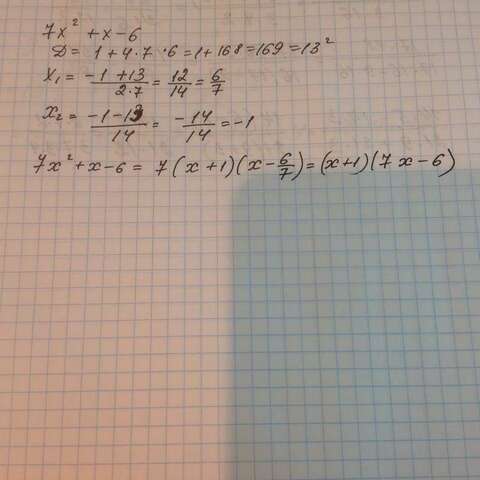 7x² + x - 6
D = 1 + 4 · 7 · 6 = 1 + 168 = 169 = 13²
x₁ = (-1 + 13)/(2 · 7) = 12/14 = 6/7
x₂ = (-1 - 13)/14 = -14/14 = -1
7x² + x - 6 = 7(x + 1)(x - 6/7) = (x + 1)(7x - 6)